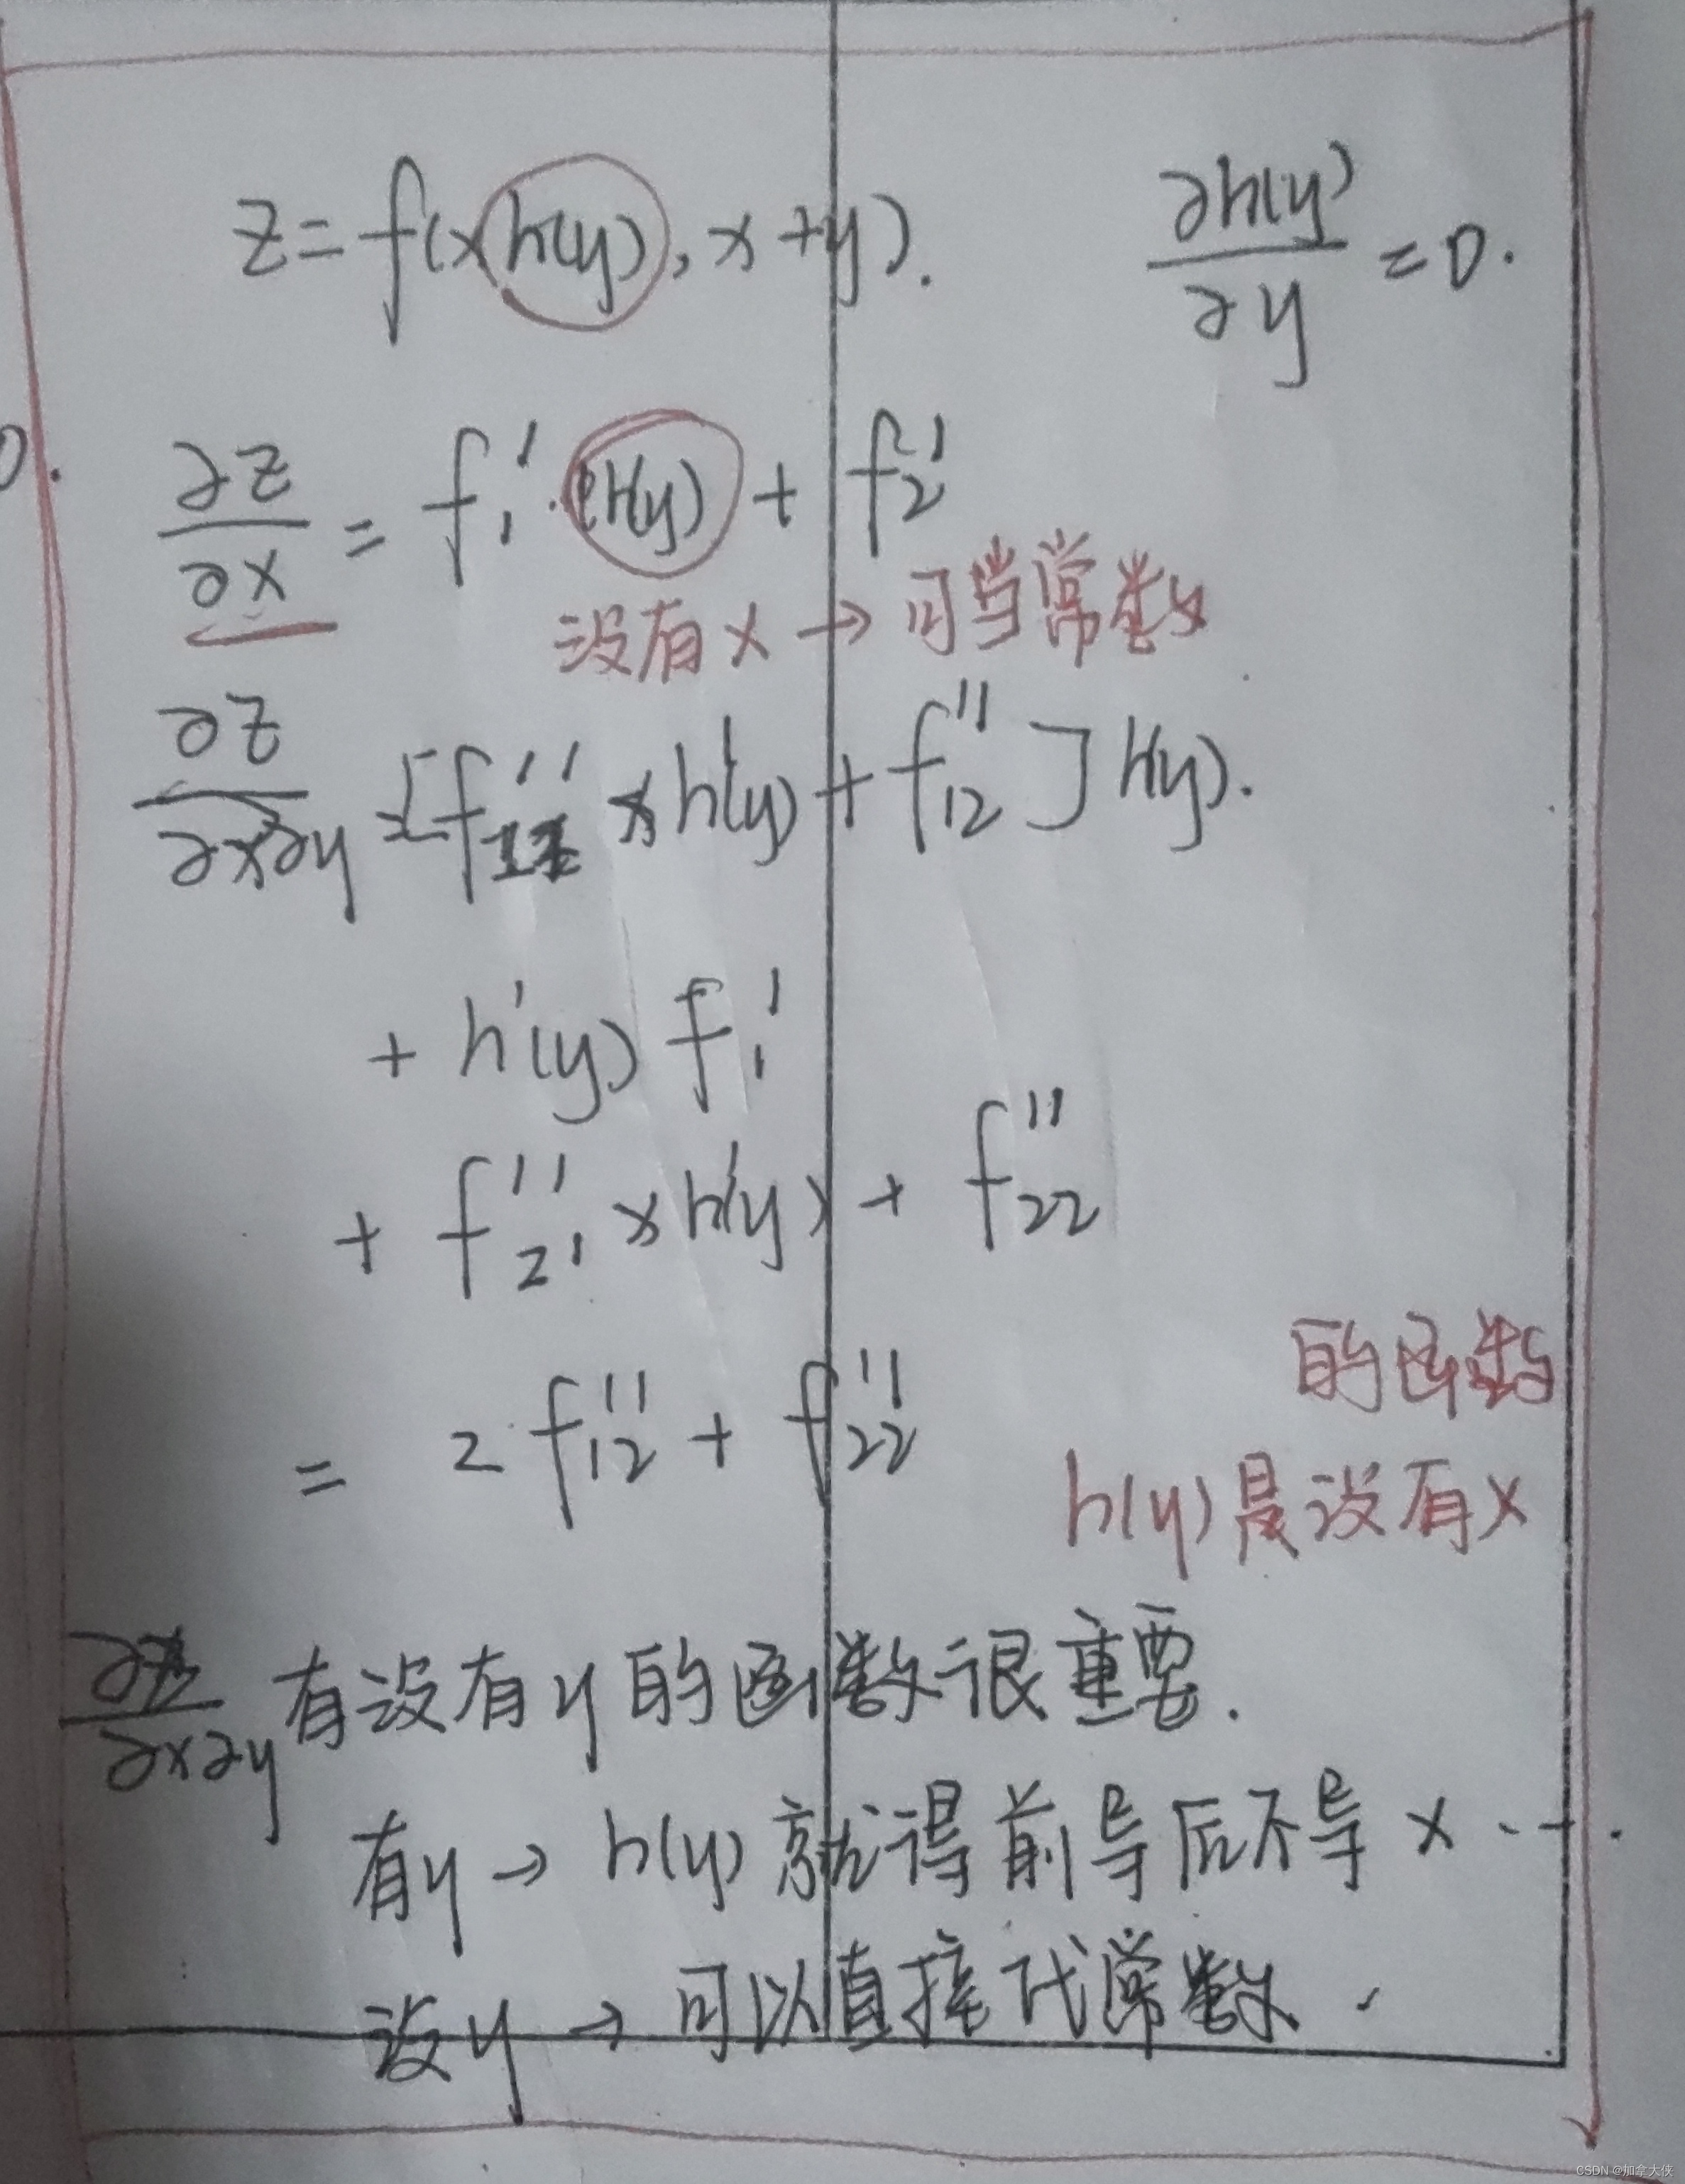 z=f(xh(y),x+y). ∂h(y)/∂y=0.
∂z/∂x = f₁′·(h(y)) + f₂′
没有x→可当常数
∂z/∂x∂y =[f₁₁″xh′(y)+f₁₂″]h(y).
+h′(y)f₁′
+f₂₁″xh′(y)+f₂₂″
=2f₁₂″+f₂₂″
的函数
h(y)是没有x
∂z/∂x∂y 有没有y的函数很重要.
有y→h(y)就得前导后不导x...
没y→可以直接代常数.
CSDN @加拿大侠